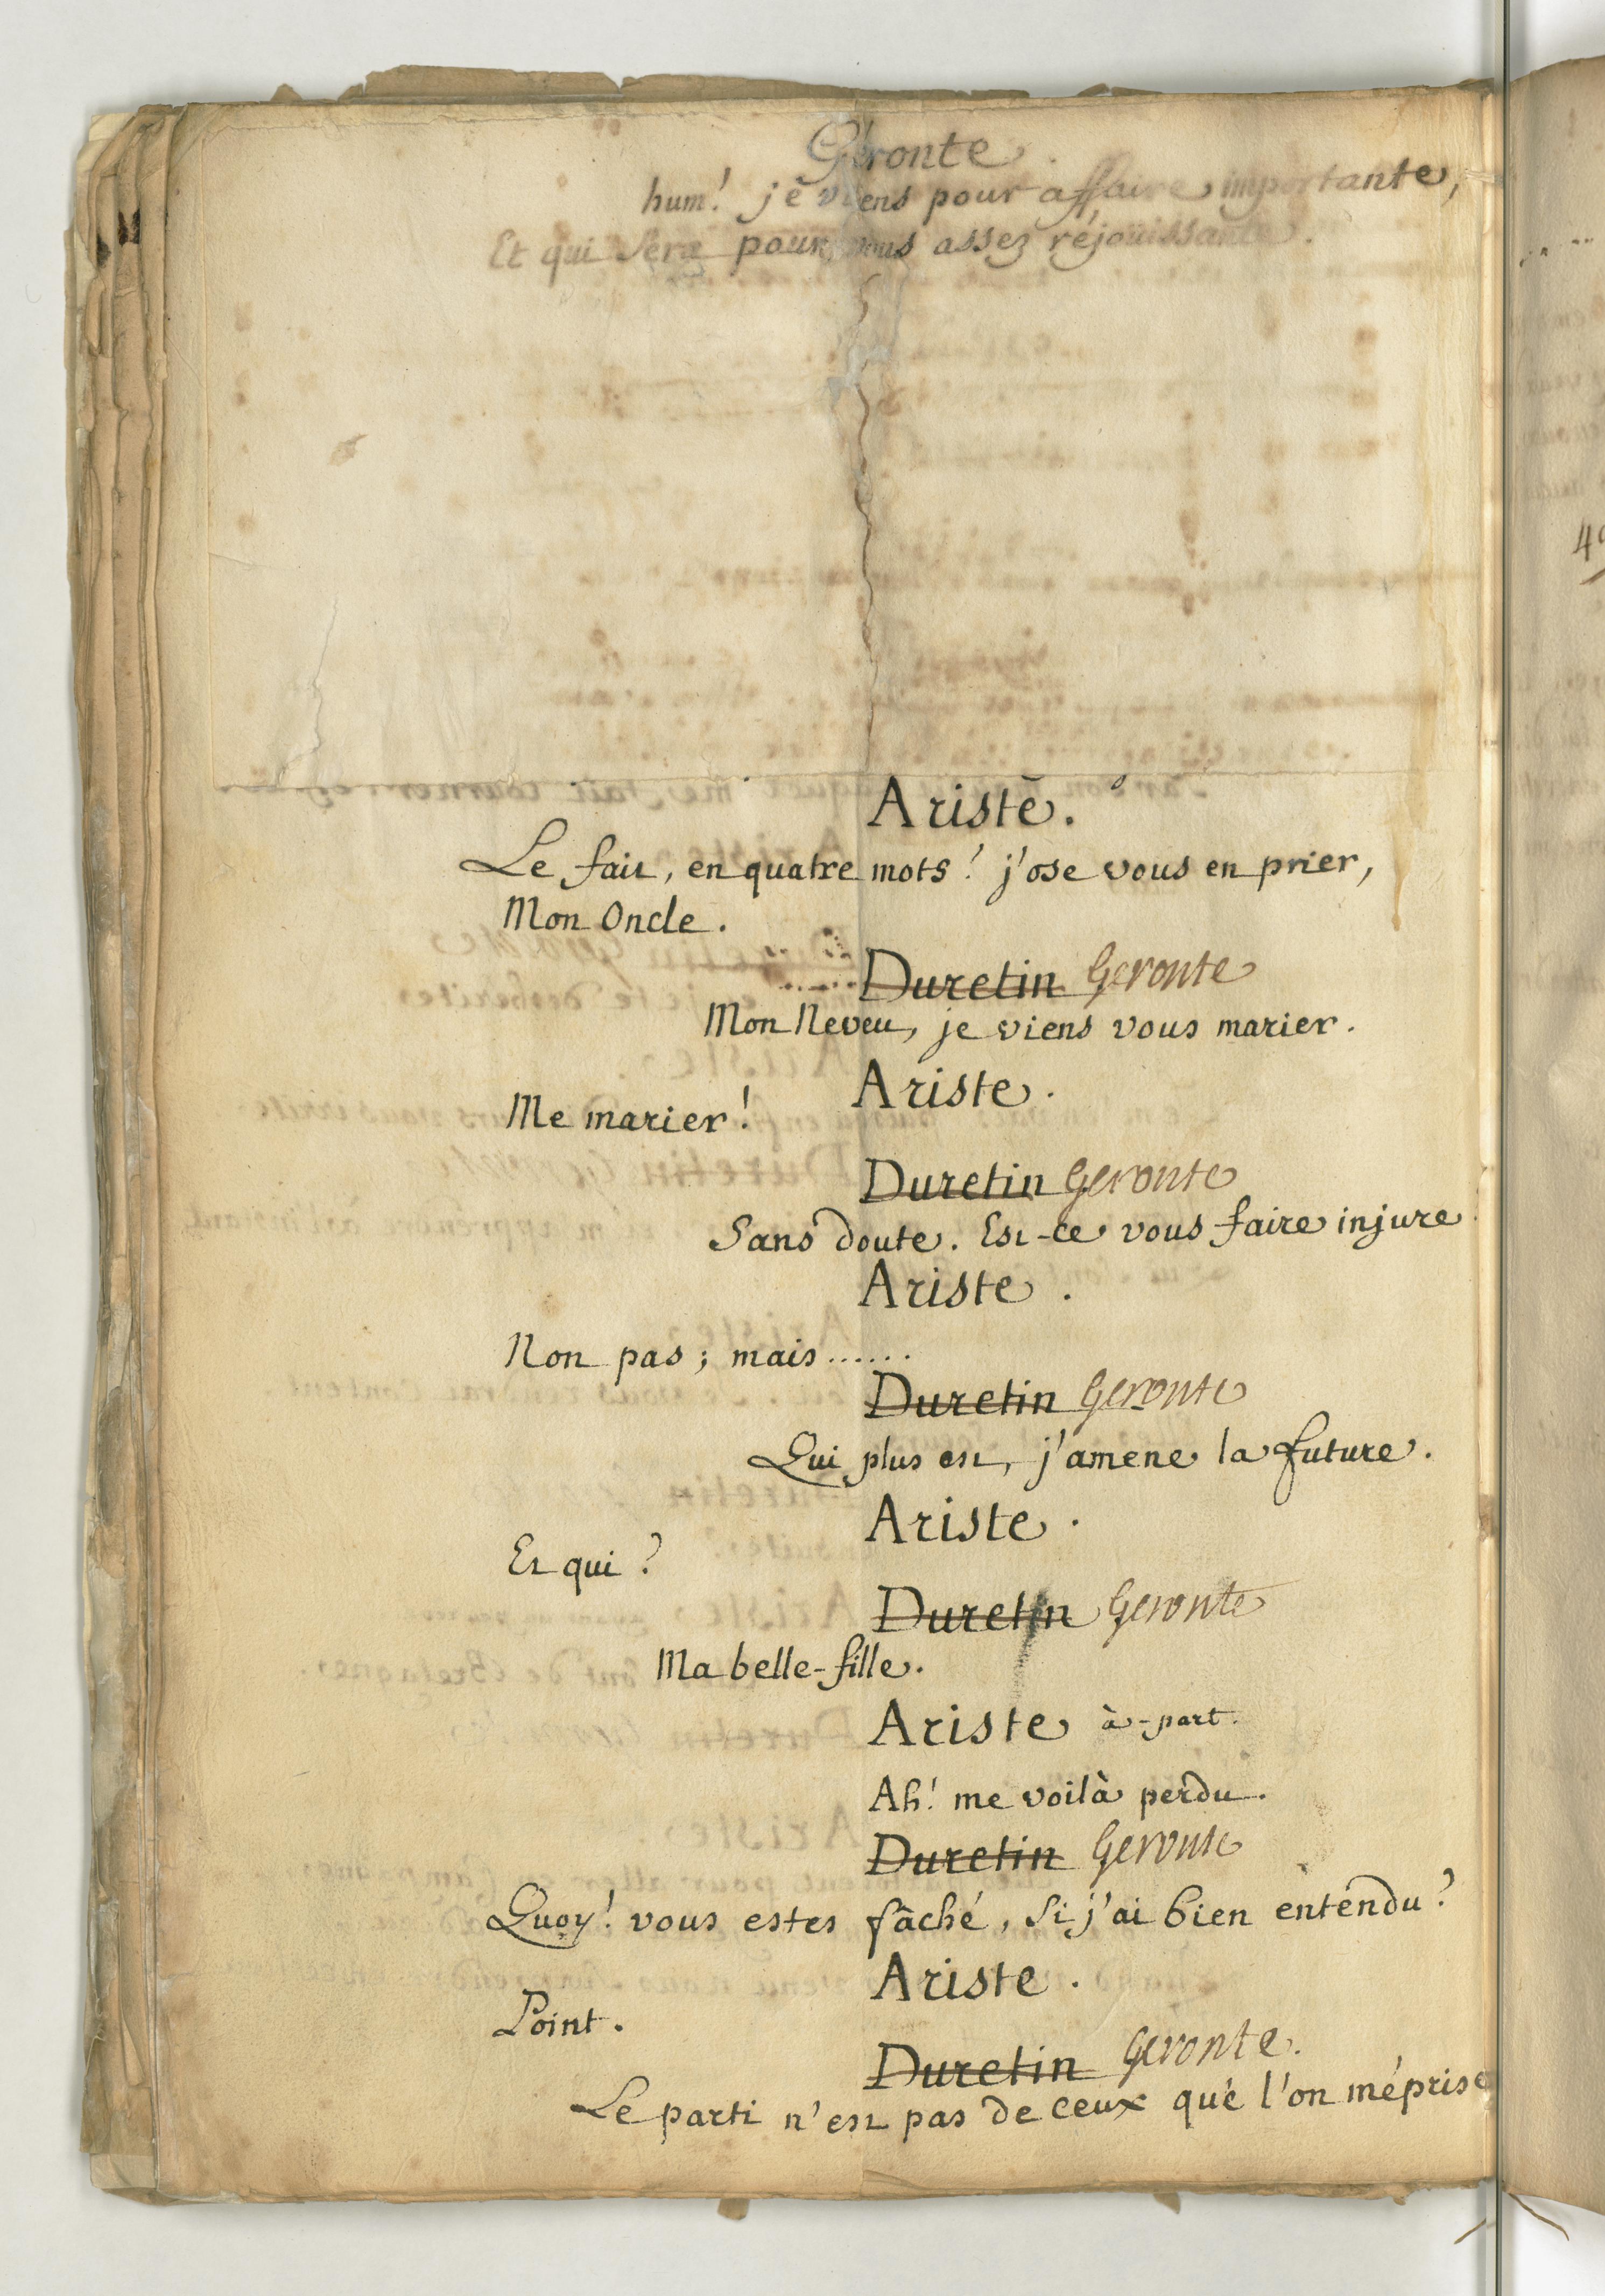 Géronte.
hum! je viens pour affaire importante,
Et qui sera pour vous assez réjouissante.
Ariste.
Le fait, en quatre mots! j'ose vous en prier,
Mon Oncle.
Duretin Geronte
Mon Neveu, je viens vous marier.
Ariste.
Me marier!
Duretin Geronte
Sans doute. Est-ce vous faire injure
Ariste.
Non pas; mais......
Duretin Geronte
Qui plus est, j'amene la future.
Ariste.
Et qui?
Duretin Geronte
Ma belle-fille.
Ariste à-part.
Ah! me voilà perdu.
Duretin Geronte
Quoy! vous estes fâché, si j'ai bien entendu?
Ariste.
Point.
Duretin Geronte.
Le parti n'est pas de ceux que l'on méprise